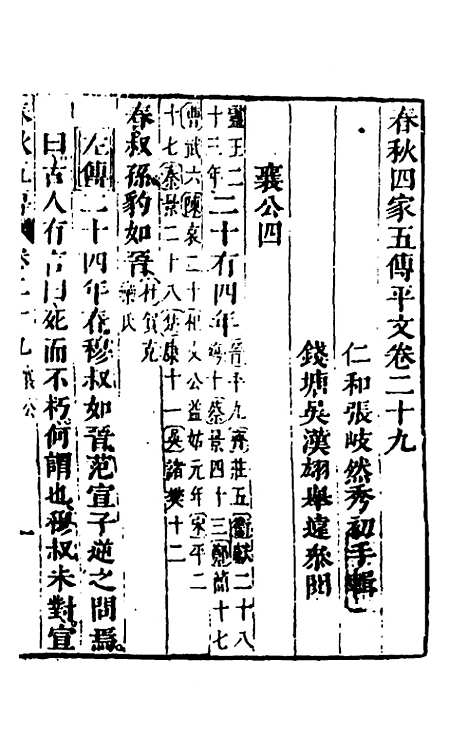 春秋四家五傳平文卷二十九
仁和張岐然秀初手輯
錢塘吳漢翊舉遠叅閱
襄公四
靈王二十三年二十有四年晉平九齊莊五衞獻二十八
曹武六陳哀二十杞文公益姑元年宋平二十七秦景二十八楚康十一吳諸樊十二
春叔孫豹如晉杜賀克欒氏
左傳二十四年春穆叔如晉范宣子逆之問焉
曰古人有言曰死而不朽何謂也穆叔未對宣
春秋五傳卷二十九襄公 一